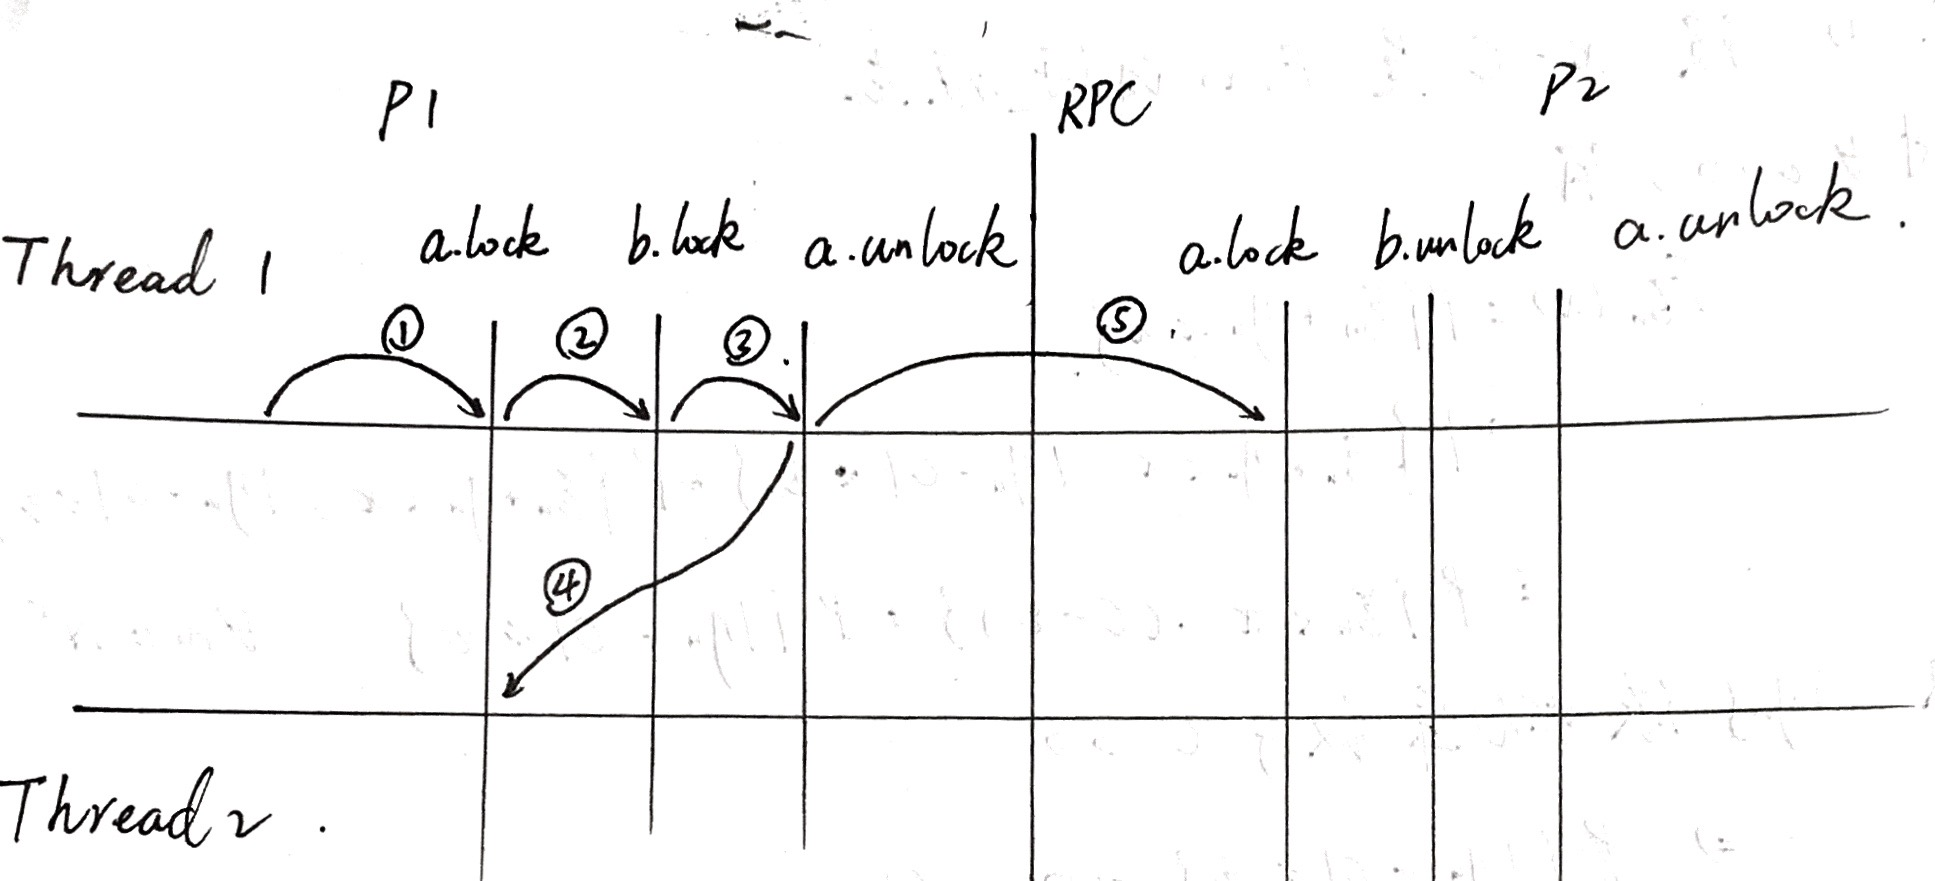 P1 RPC P2
Thread 1 a.lock b.lock a.unlock a.lock b.unlock a.unlock.
① ② ③ ⑤
④
Thread 2.